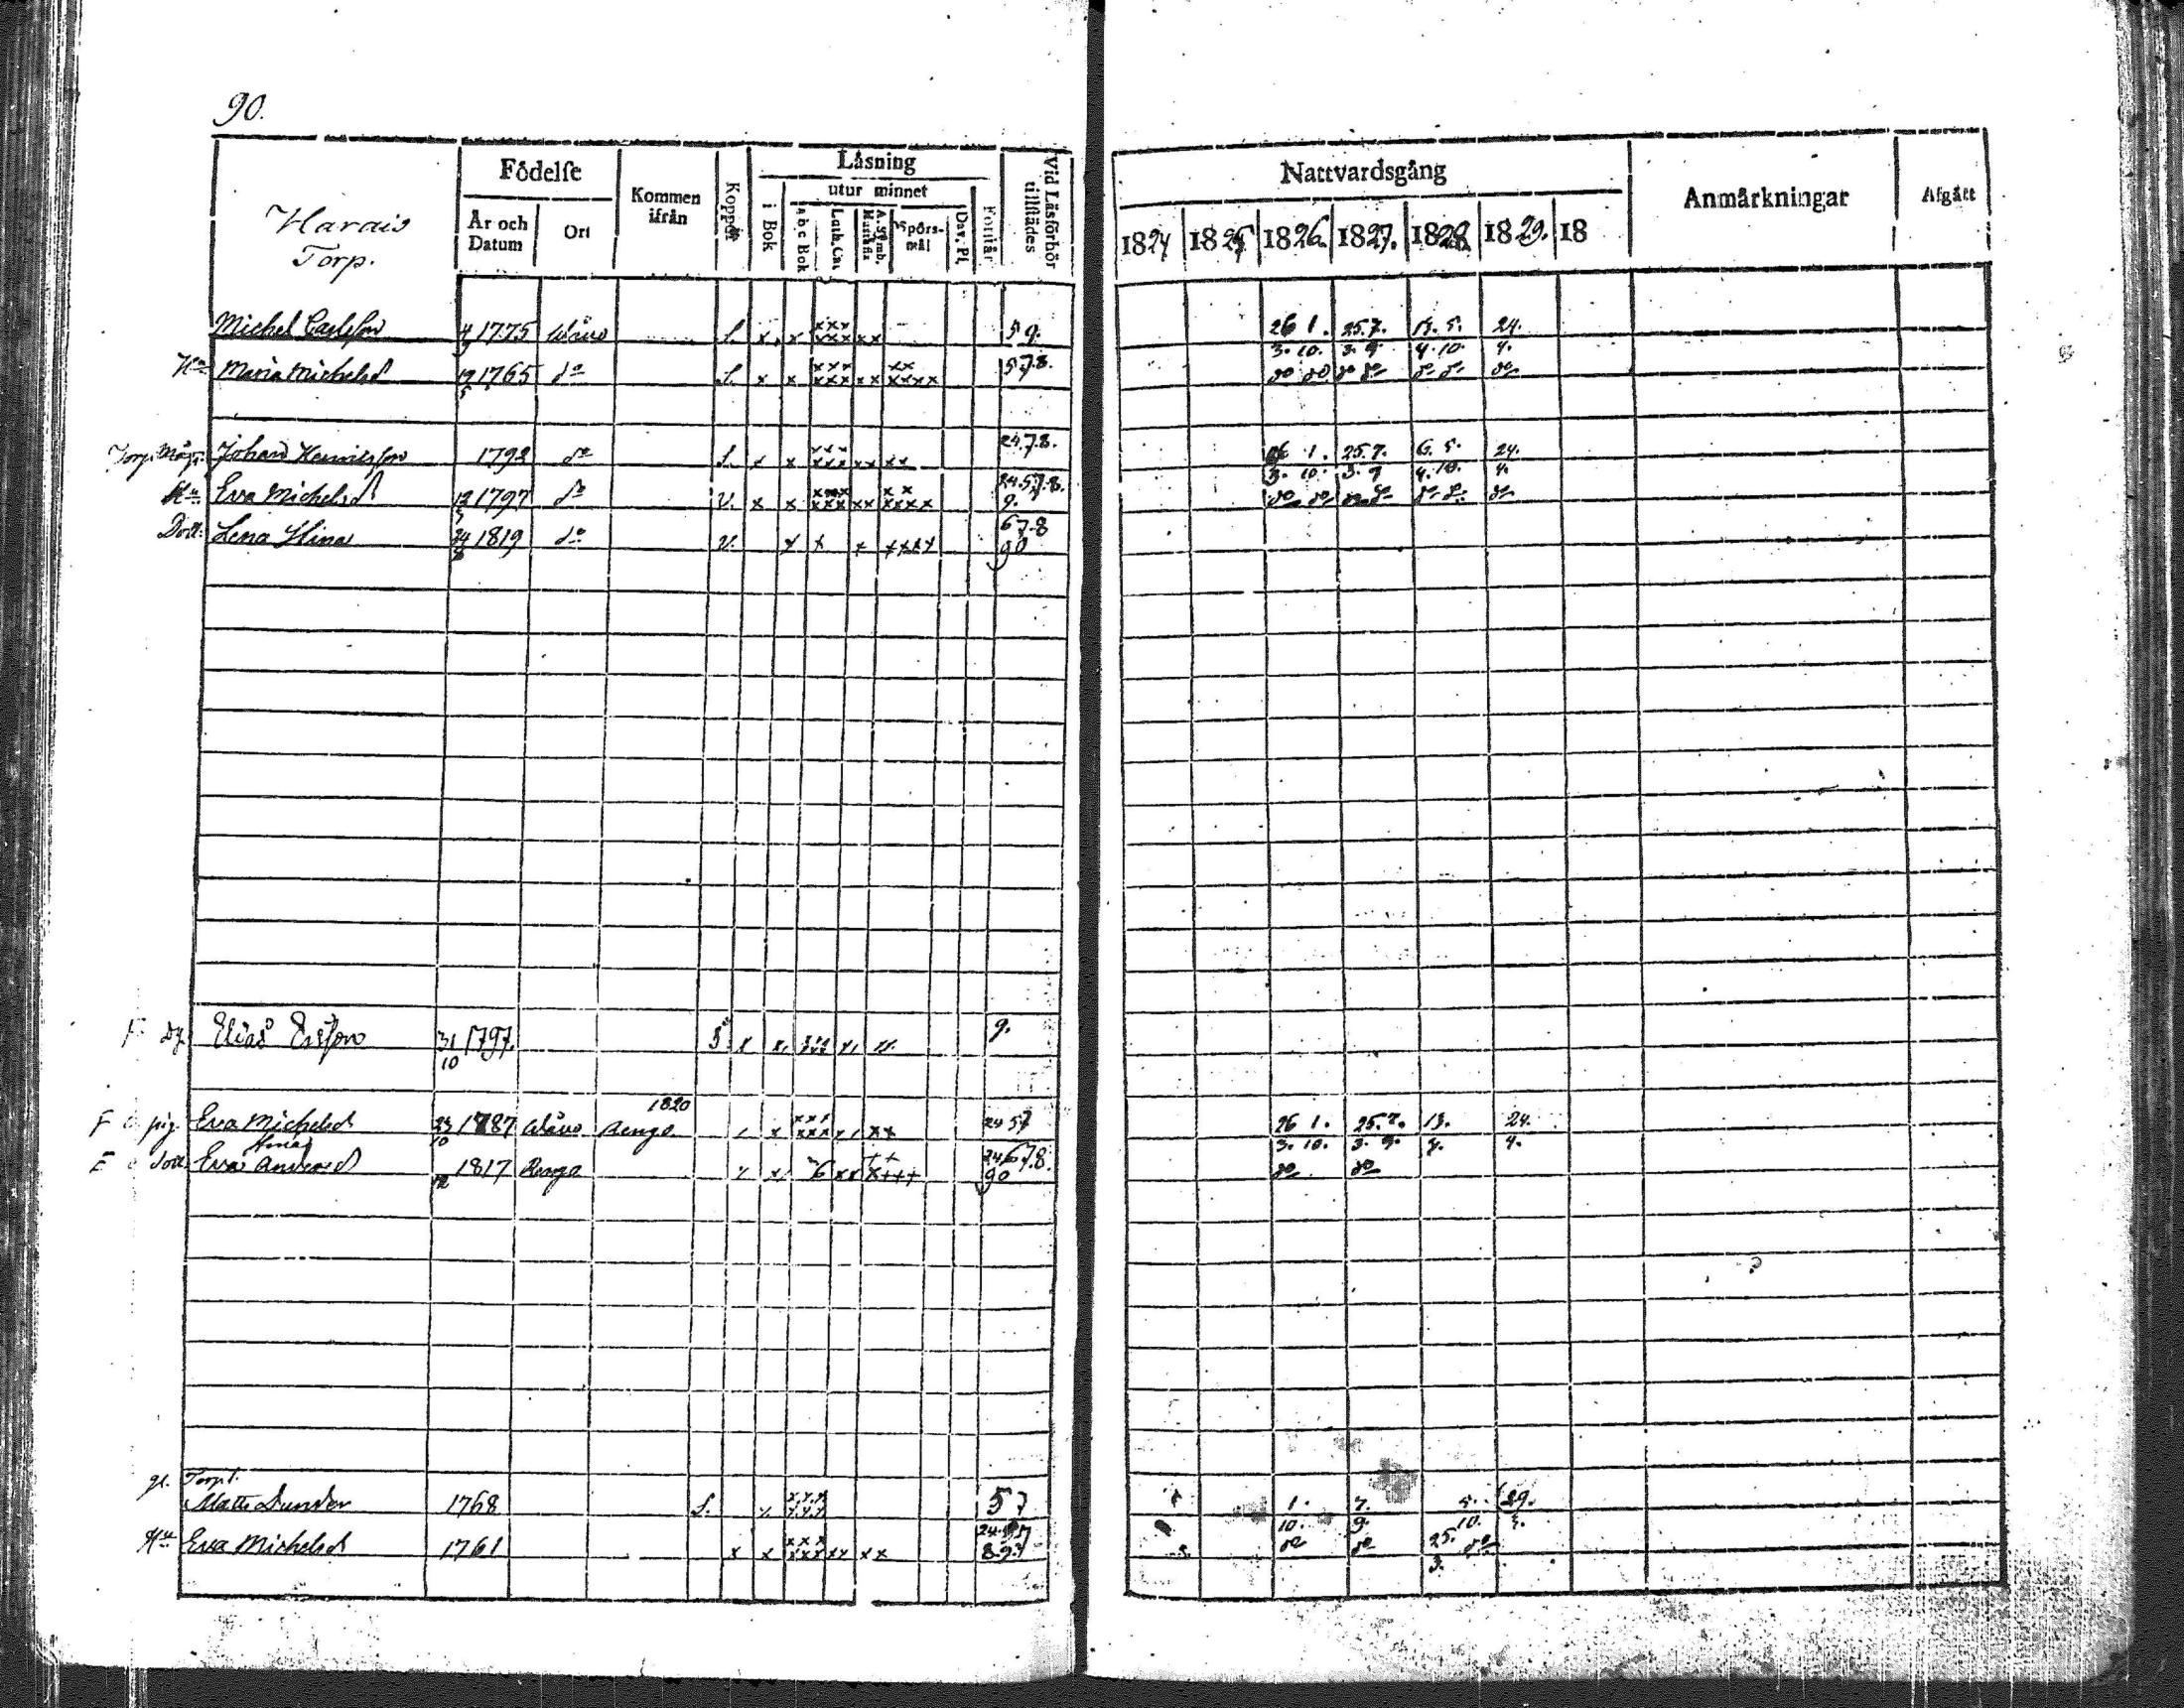 90.
Harais Torp.
Födelse
År och Datum
Ort
Kommen ifrån
Koppor
Läsning
i Bok
utur minnet
Abc Bok
Luth. Cat
A. Symb.
Spörsmål
Dav. Ps.
Förstår
Vid Läsförhör tillstädes
Nattvardsgång
1824 1825 1826. 1827. 1828. 1829. 18
Anmärkningar
Afgått
Michel Carlsson 4/9 1775 S. x. x xxx xxx xx 5 9. 26 1. 25.7. 13. 5. 24.
3. 10. 3. 9 4. 10. 4.
Hu Maria Michelsd 19/5 1765 do S. x x xxx xxx xx xx xxxx 5 7.8. do do do do do do do
Torp. Måg. Johan Henricsson 1792 do S. x x xxx xxx xx xx 24.7.8. 26 1. 25.7. 6. 5. 24.
3. 10. 3. 9 4. 10. 4.
Hu Eva Michelsd 12/9 1797 do V. x x xxx xxx xx xx xxxx 24.5.7.8. 9. do do do do do do do
Dott. Lena Stina 24/8 1819 do V. x x x xxxx 67.8 90
Elias Ersson 31/10 1797. S x x. xxx x. x. 9.
1820
F pig. Eva Michelsd 23/10 1787 x xxx xxx xx 24 57 26 1. 25.7. 13. 24.
3. 10. 3. 9. 4. 4.
dott Eva Stina Andersd 1817 Rengo x x. 6 xx x+++ 24678. 90 do do
gl. Torp.
Matts Dunder 1768 S. x. xxx xxx 5 7 1. 7. 5. 29.
10. 9. 10.
Hu Eva Michelsd 1761 x x xxx xxx xx xx 8.9. do do 25. do
3.